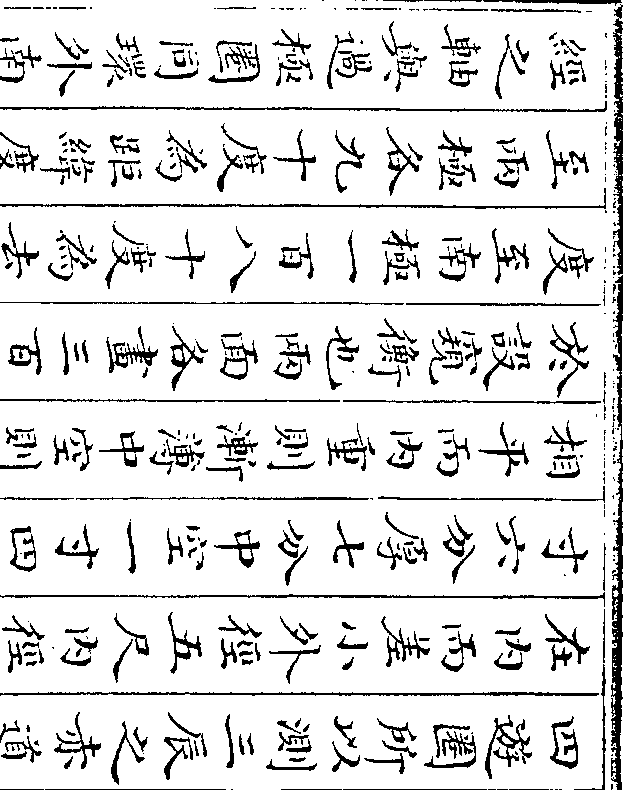 四遊圈所以測三辰之赤道
在内而差小外徑五尺内徑
寸六分厚七分中空一寸四
相平而内重則漸薄中空則
於設窺衡也兩面各畫三百
度至南極一百八十度為去
至兩極各九十度為距緯度
經之軸與過極圈同環外南